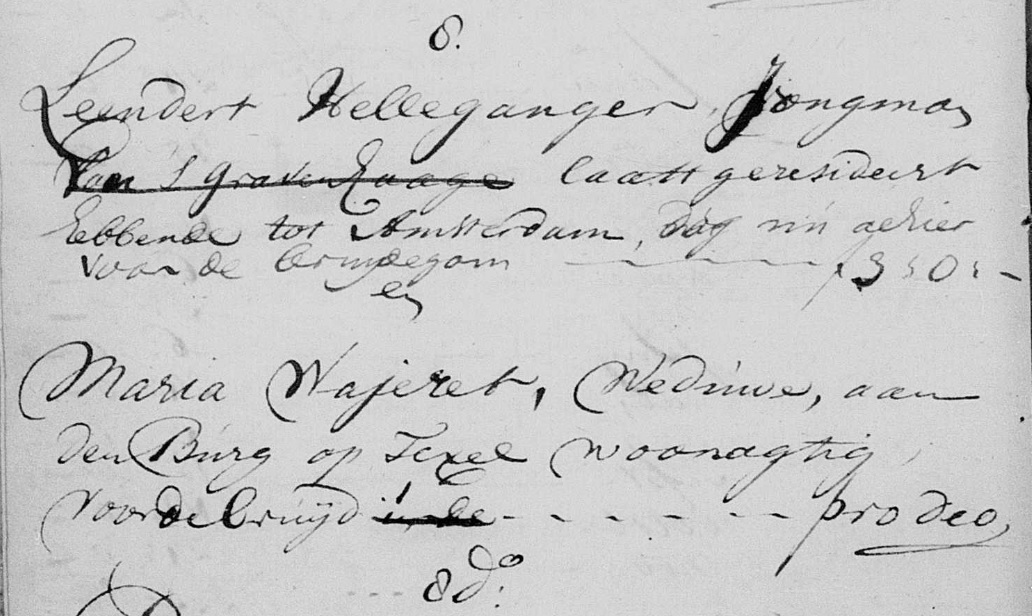 8.
Leendert Helleganger, Jongman
van 's Gravenhaage laatst geresideert
hebbende tot Amsterdam, dog nu alhier
voor de bruydegom - - - - - ƒ 3:0:-
en
Maria Wajeret, Weduwe, aan
den Burg op Texel woonagtig,
voor de bruijd - - - - - - pro deo,
8 do: